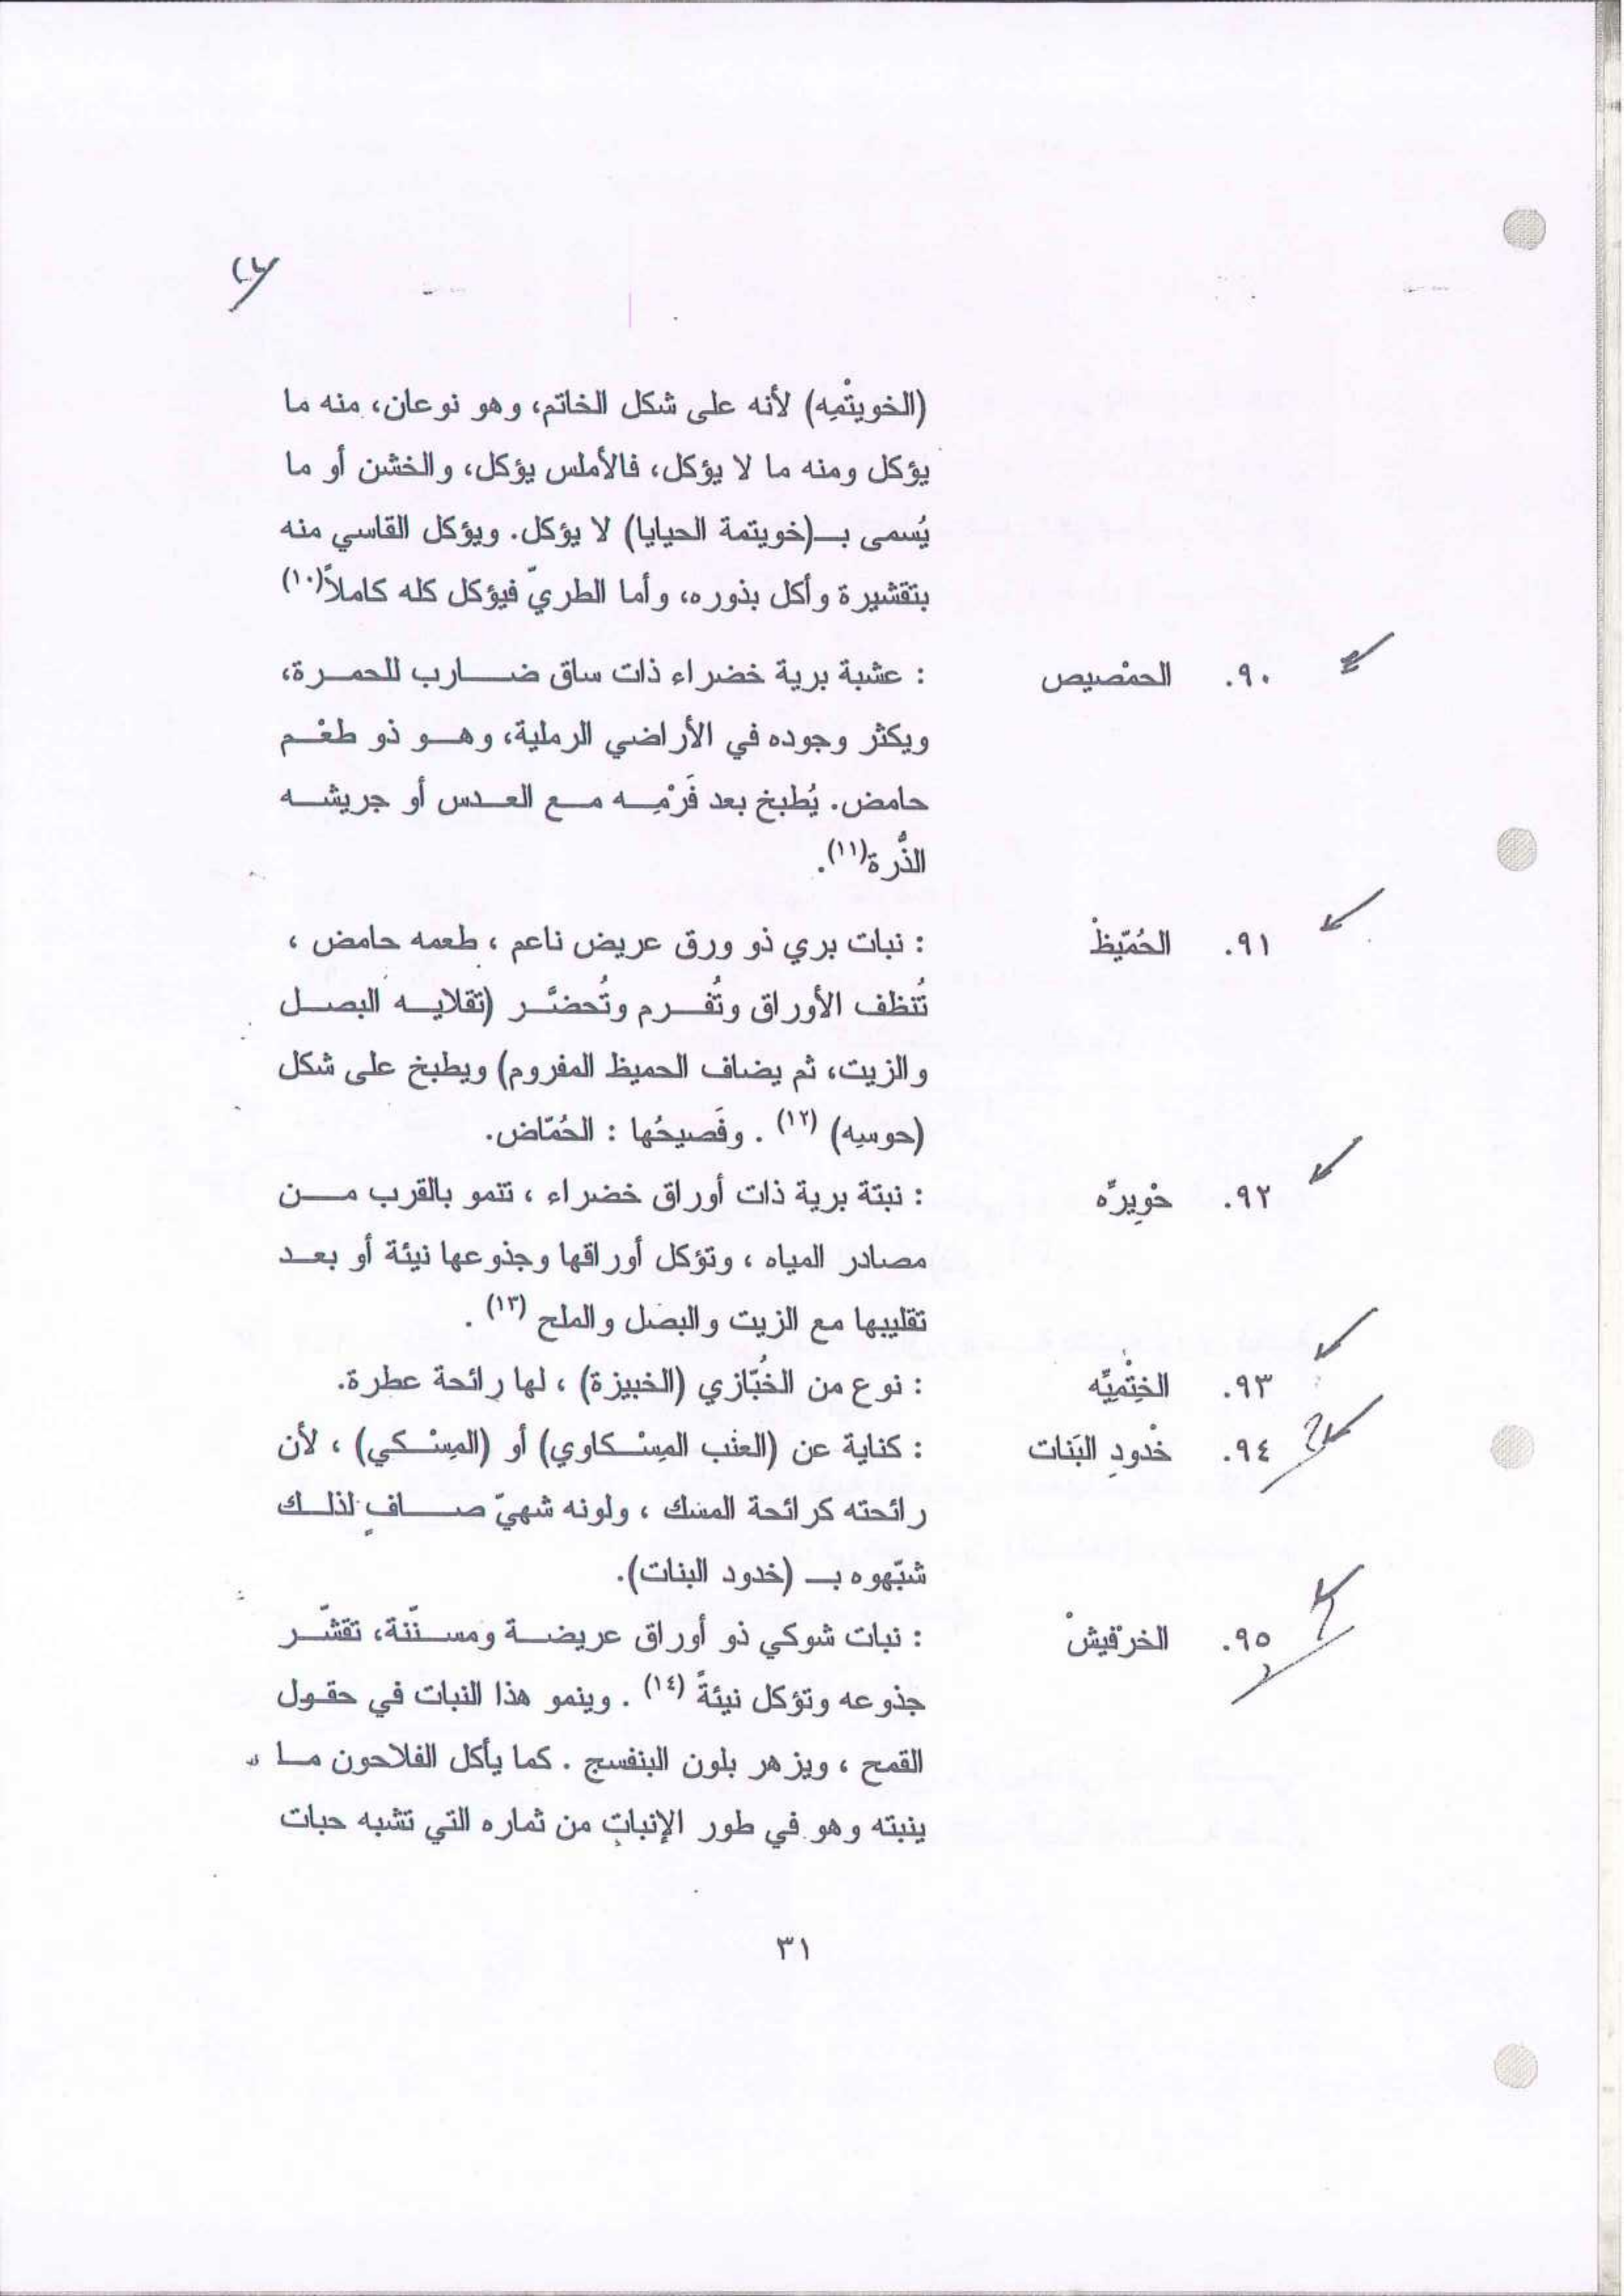 (الخويتْمِه) لأنه على شكل الخاتم، وهو نوعان، منه ما
يؤكل ومنه ما لا يؤكل، فالأملس يؤكل، والخشن أو ما
يُسمى بـ(خويتمة الحيايا) لا يؤكل. ويؤكل القاسي منه
بتقشيرة وأكل بذوره، وأما الطريّ فيؤكل كله كاملاً(١٠)
٩٠. الحمْصيص : عشبة برية خضراء ذات ساق ضارب للحمرة،
ويكثر وجوده في الأراضي الرملية، وهو ذو طعْم
حامض. يُطبخ بعد فَرْمِه مع العدس أو جريشه
الذُّرة(١١).
٩١. الحُمّيظْ : نبات بري ذو ورق عريض ناعم ، طعمه حامض ،
تُنظف الأوراق وتُفرم وتُحضَّر (تقلايه البصل
والزيت، ثم يضاف الحميظ المفروم) ويطبخ على شكل
(حوسيه) (١٢) . وفَصيحُها : الحُمّاض.
٩٢. حْوِيرّه : نبتة برية ذات أوراق خضراء ، تنمو بالقرب من
مصادر المياه ، وتؤكل أوراقها وجذوعها نيئة أو بعد
تقليبها مع الزيت والبصل والملح (١٣) .
٩٣. الخِتْمِيِّه : نوع من الخُبّازي (الخبيزة) ، لها رائحة عطرة.
٩٤. خْدودِ البَنات : كناية عن (العنب المِسْكاوي) أو (المِسْكي) ، لأن
رائحته كرائحة المسك ، ولونه شهيّ صافٍ لذلك
شبّهوه بـ (خدود البنات).
٩٥. الخرْفيشْ : نبات شوكي ذو أوراق عريضة ومسنّنة، تقشّر
جذوعه وتؤكل نيئةً (١٤) . وينمو هذا النبات في حقول
القمح ، ويزهر بلون البنفسج . كما يأكل الفلاحون ما
ينبته وهو في طور الإنباتِ من ثماره التي تشبه حبات
٣١